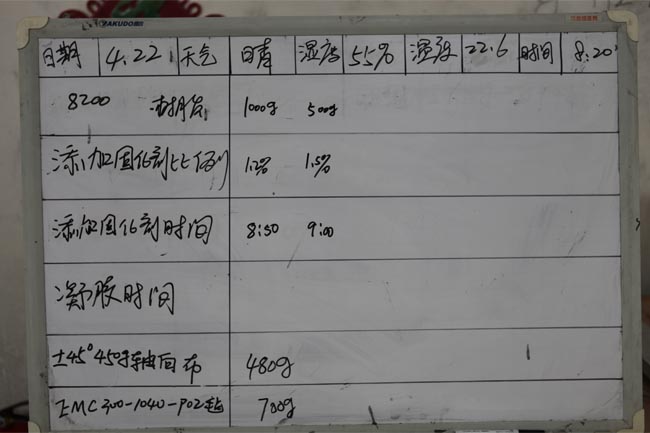 YAKUDO
日期 4.22 天气 日青 湿度 55% 温度 22.6 时间 8:20
8200 树脂 1000g 500g
添加固化剂比例 1.2% 1.5%
添加固化剂时间 8:50 9:00
凝胶时间
±45° 450 轴向布 480g
EMC300-1040-P02毡 700g